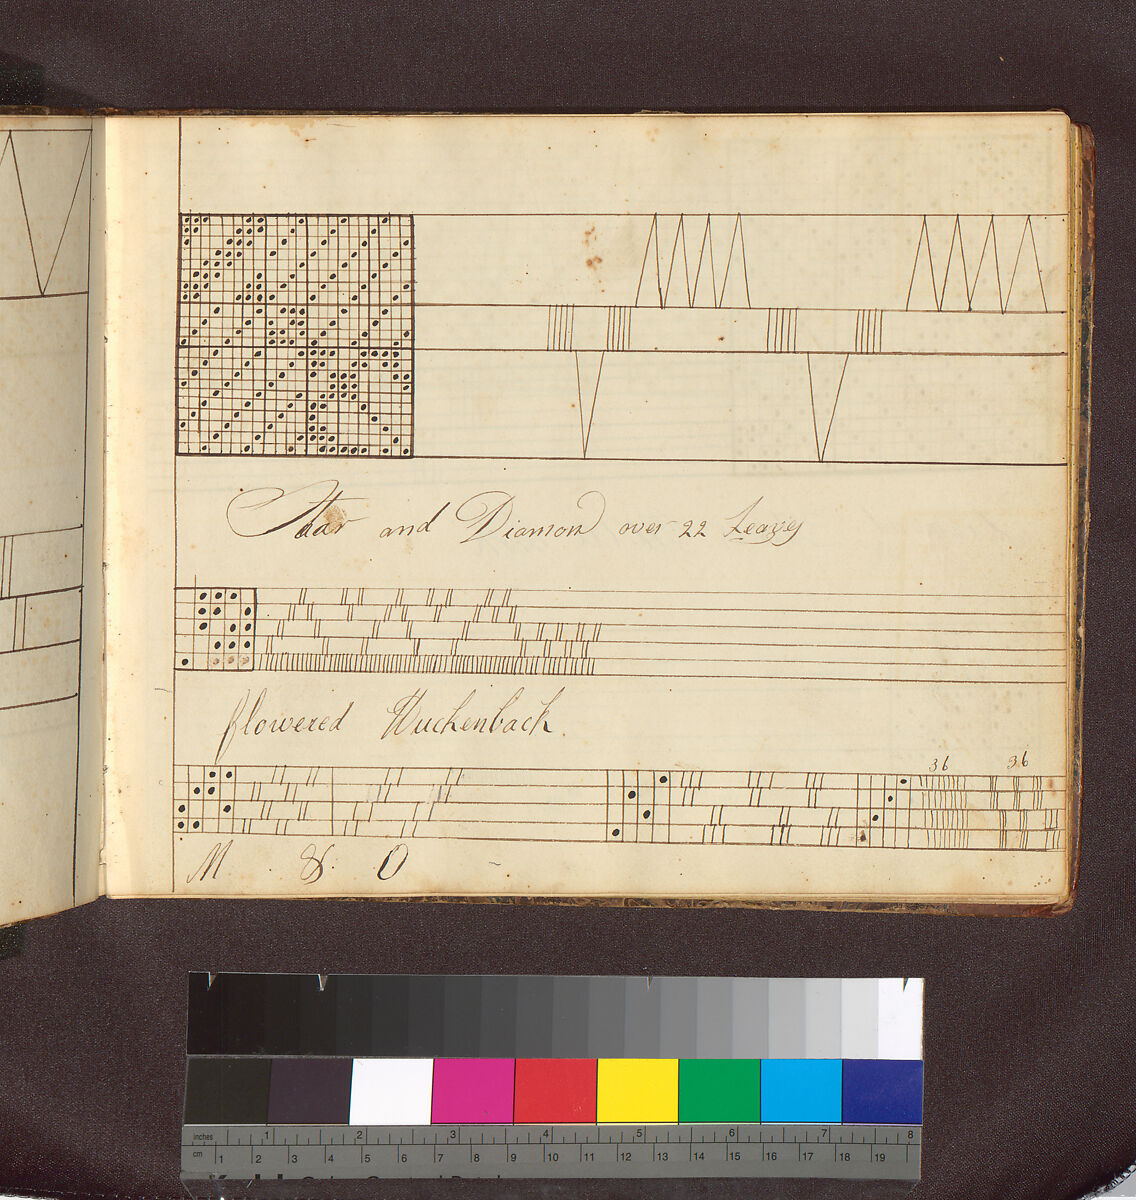 Star and Diamond over 22 Leaves
flowered Huckenback.
36 36
M & O
inches 1 2 3 4 5 6 7 8
cm 1 2 3 4 5 6 7 8 9 10 11 12 13 14 15 16 17 18 19